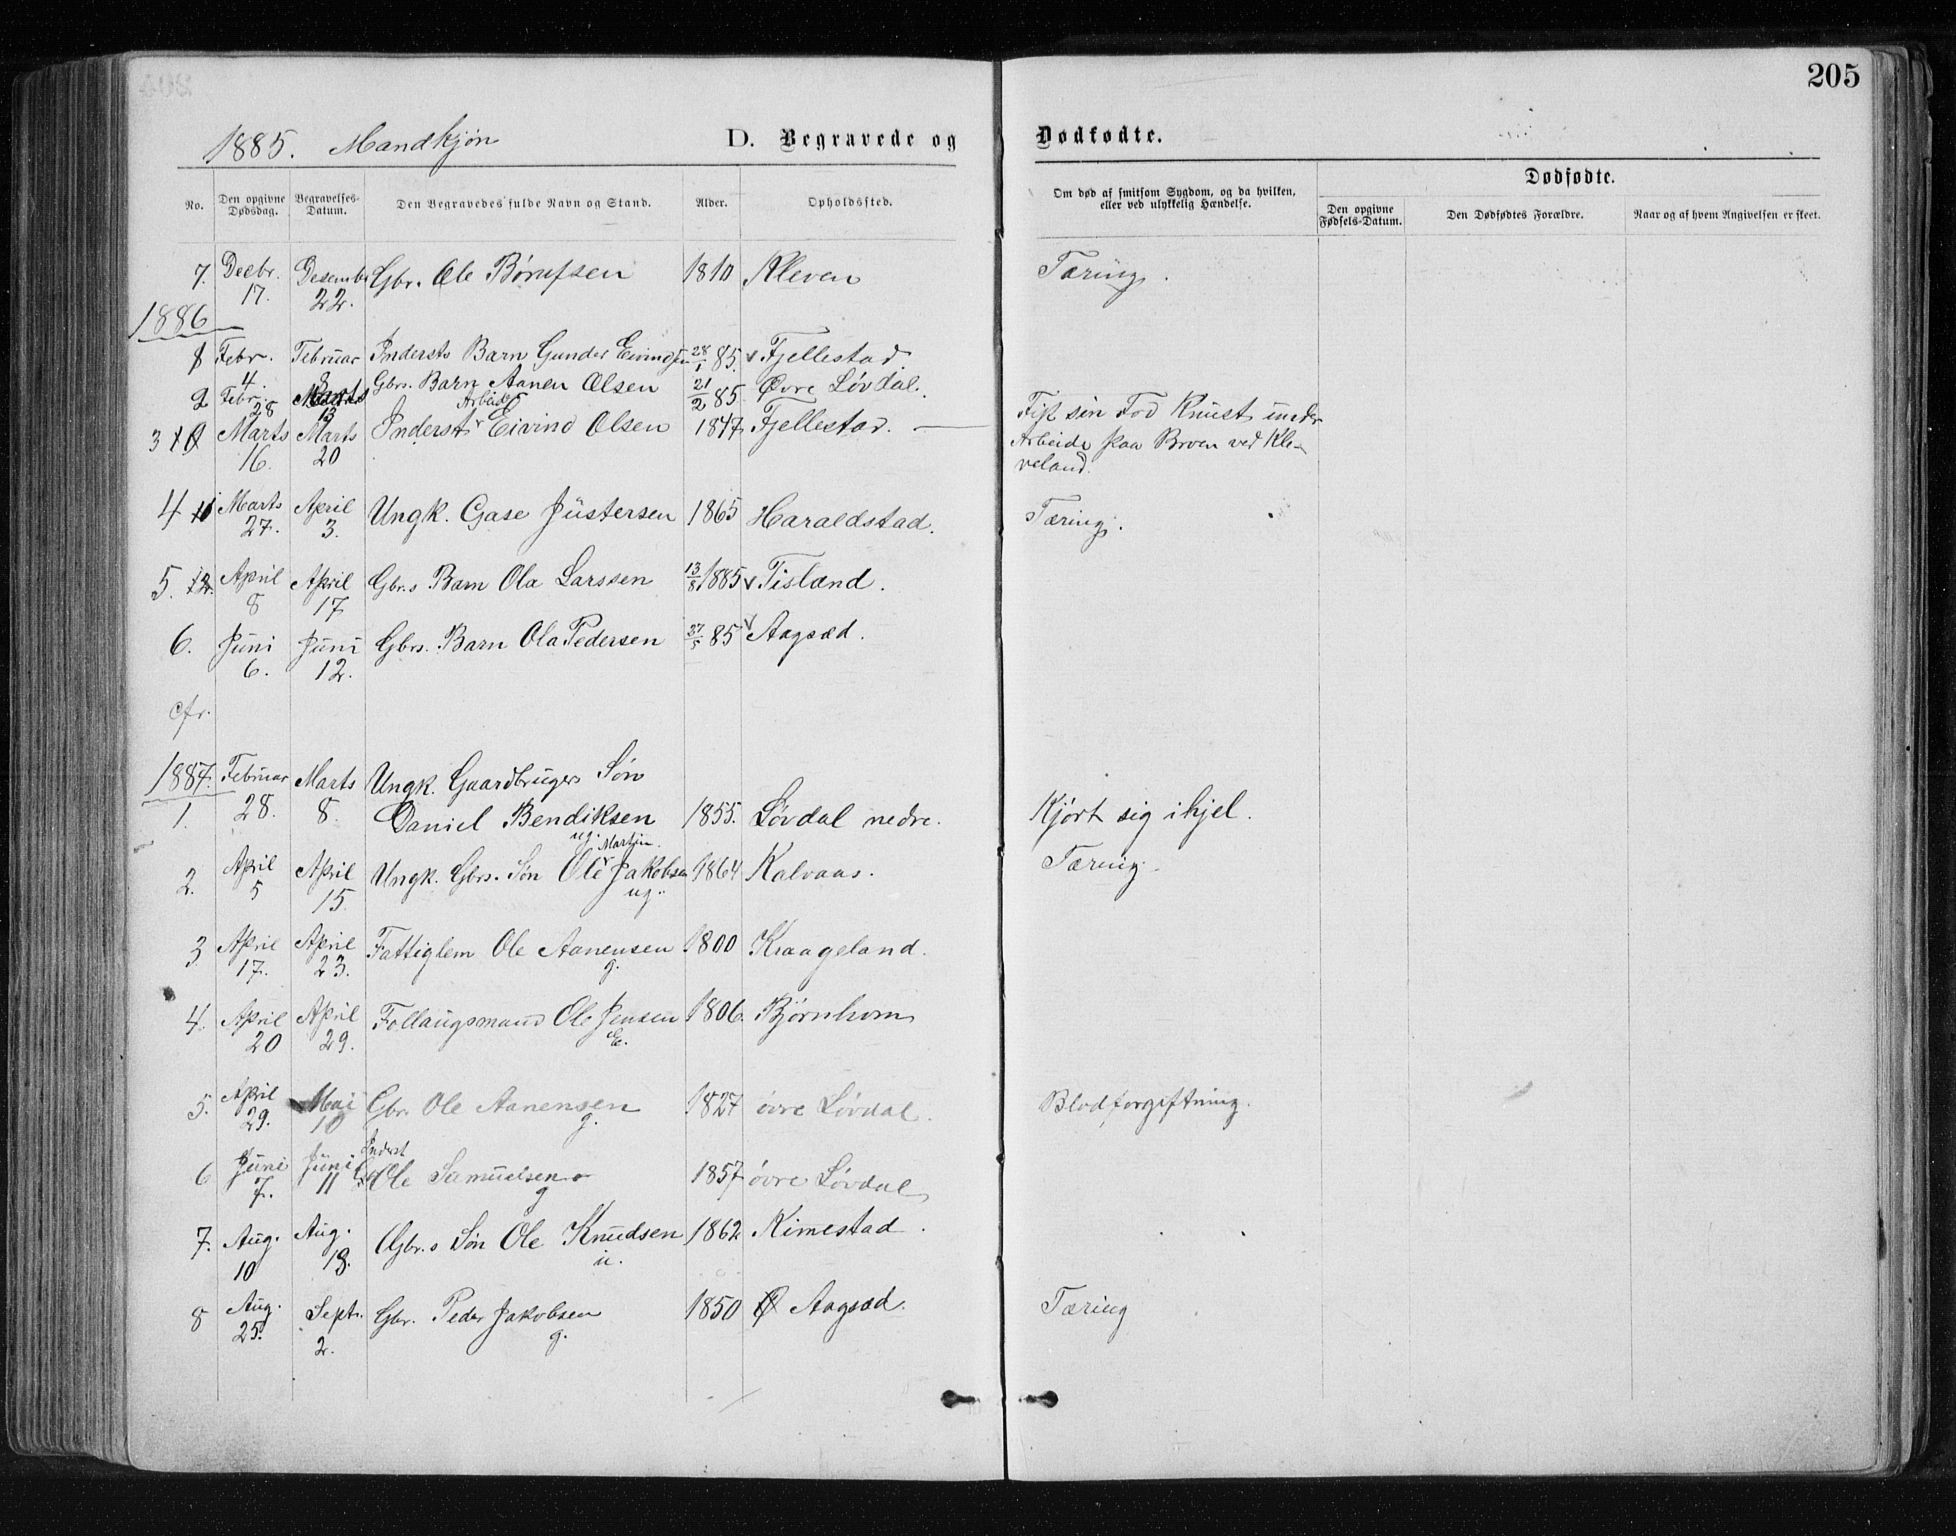 205
1885. Mandkjøn D. Begravede og Dødfødte.
No. Den opgivne Dødsdag. Begravelses-Datum. Den Begravedes fulde Navn og Stand. Alder. Opholdssted. Om død af smitsom Sygdom, og da hvilken, eller ved ulykkelig Hændelse. Dødfødte.
Den opgivne Fødsels-Datum. Den Dødfødtes Forældre. Naar og af hvem Angivelsen er skeet.
7. Decbr. 17. Desembr 22. Gbr. Ole 1810 Kleven Tæring.
1886
1 Febr. 4. Februar Indersts Barn Gunder Eivindsen 28/1 85. Fjellestad
2 Febr. 28 13 Gbrs. Barn Aanen Olsen 21/2 85 Øvre Løvdal.
3 10 Marts 16. Marts 20 Inderst Arbeid Eivind Olsen 1847 Fjellestad. — Fik sin Fod Knust under
Arbeide paa Broen ved Kle-
veland.
4 11 Marts 27. April 3. Ungk. Gase Justersen 1865 Haraldstad. Tæring.
5. 12. April 8 April 17 Gbr.s Barn Ola Larssen 13/8 1885 Tisland.
6. Juni 6. Juni 12. Gbrs. Barn Ola Pedersen 85 Aagsæd.
cfr.
1887. Februar Marts Ungk. Gaardbrugers Søn
1. 28. 8. Daniel Bendiksen 1855. Løvdal nedre. Kjørt sig ihjel.
ug. Martin.
2. April 5 April 15. Ungk. Gbrs. Søn Ole Jakobsen 1864 Kalvaas. Tæring.
ug.
3 April 17. April 23. Fattiglem Ole Aanensen 1800 Kraageland.
g.
4. April 20 April 29. Follaugsmand Ole Jensen 1806. Bjørnhom
E.
5. April 29. Mai 10 Gbr. Ole Aanensen 1827 øvre Løvdal. Blodforgiftning.
g.
Inderst
6 Juni 7. Juni 11 Ole Samuelsen 1857 øvre Løvdal
g
7. Aug. 10 Aug. 18. Gbr.s Søn Ole Knudsen 1862 Rimestad.
u.
8 Aug. 25. Sept. 2. Gbr. Peder Jakobsen 1850 Ø Aagsæd. Tæring
g.